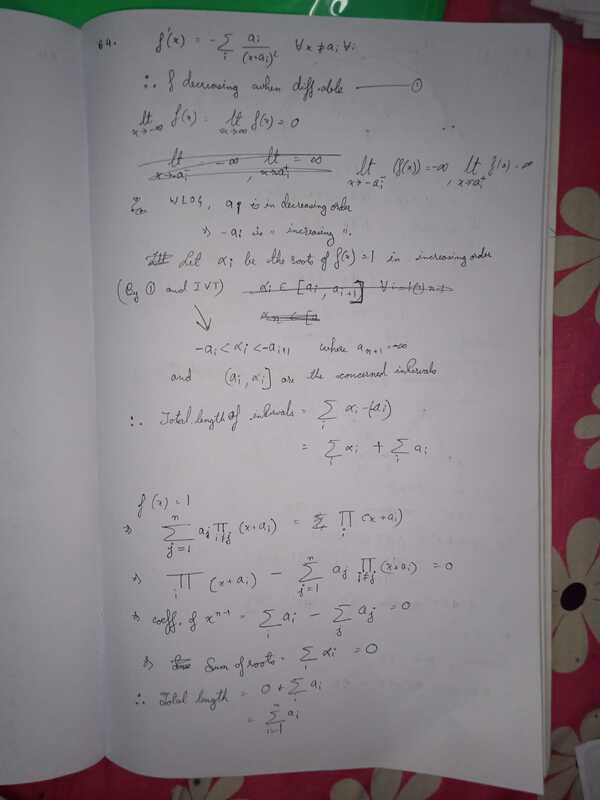 64. f'(x) = -∑_i a_i/(x+a_i)² ∀x≠a_i ∀i
∴ f decreasing when diff.able ——— ①
lt_{x→-∞} f(x) = lt_{x→∞} f(x) = 0
lt_{x→-a_i^-} (f(x)) = -∞, lt_{x→a_i^+} f(x) = ∞
WLOG, a_i is in decreasing order
⇒ -a_i is " increasing ".
Let α_i be the roots of f(x) = 1 in increasing order
(By ① and IVT)
-a_i < α_i < -a_{i+1} where a_{n+1} = -∞
and (a_i, α_i] are the concerned intervals
∴ Total length of intervals = ∑_i α_i - (-a_i)
= ∑_i α_i + ∑_i a_i
f(x) = 1
⇒ ∑_{j=1}^n a_j ∏_{i≠j} (x+a_i) = ∏_i (x+a_i)
⇒ ∏_i (x+a_i) - ∑_{j=1}^n a_j ∏_{i≠j} (x+a_i) = 0
⇒ coeff. of x^{n-1} = ∑_i a_i - ∑_j a_j = 0
⇒ Sum of roots = ∑_i α_i = 0
∴ Total length = 0 + ∑_i a_i
= ∑_{i=1}^n a_i